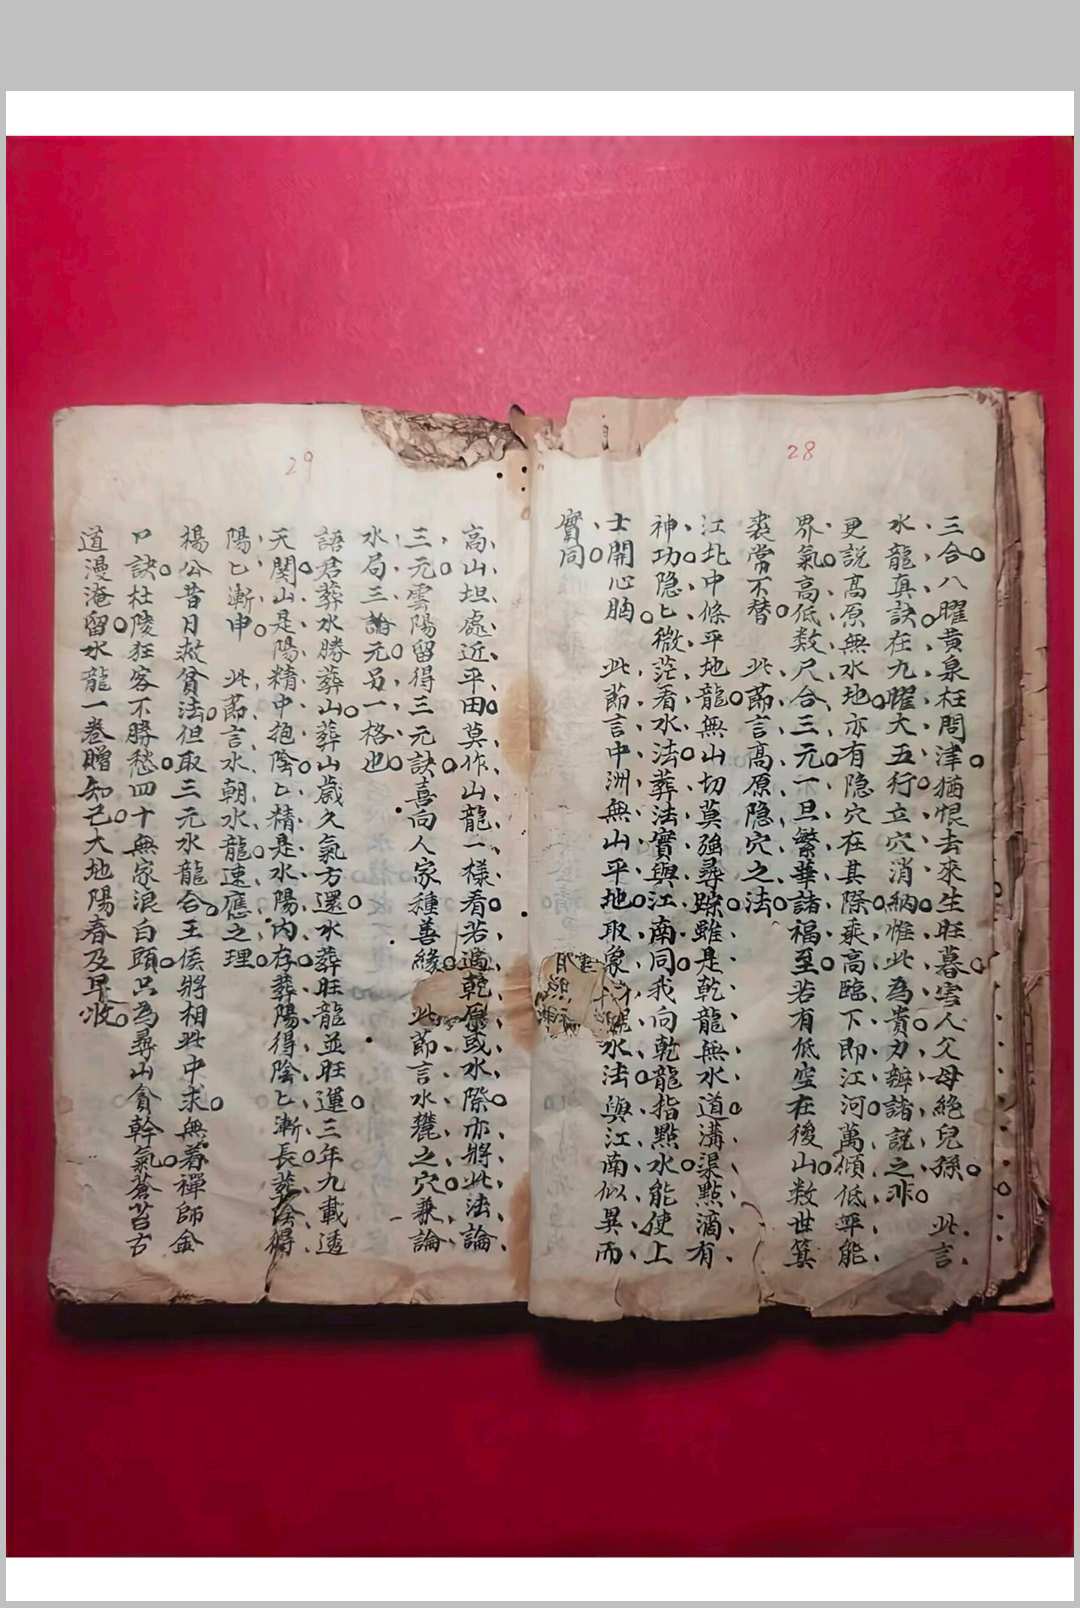 28
三合八曜黃泉枉問津猶恨去來生旺暮害人父母絶兒孫 此言
水龍真訣在九曜大五行立穴消納惟此為貴力辨諸說之非
更説髙原無水地亦有隐穴在其際乘高臨下即江河萬傾低平能
界氣高低数尺合三元一旦繁華諸福至若有低空在後山数世箕
裘常不替 此莭言髙原隐穴之法
江北中條平地龍無山切莫強尋踪雖是乾龍無水道溝渠點滴有
神功隐匕微茫看水法葬法實與江南同我向乾龍指點水能使上
士開心胸 此莭言中洲無山平地取象 水法與江南似異而
實同
29
高山坦處近平田莫作山龍一様看若過乾原或水際亦將此法論
三元雲陽留得三元訣喜向人家種善緣 此莭言水龍之穴兼論
水局三論元另一格也
語君葬水勝葬山葬山歲久氣方還水葬旺龍並旺運三年九載透
天関山是陽精中抱陰匕精是水陽内存葬陽得陰匕漸長葬陰得
陽匕漸申 此莭言水朝水龍速應之理
楊公昔日救貧法但取三元水龍合王侯將相此中求無著禪師金
口訣杜陵狂客不勝愁四十無家浪白頭只為尋山貪幹氣蒼苔古
道漫淹留水龍一卷贈知己大地陽春及早收